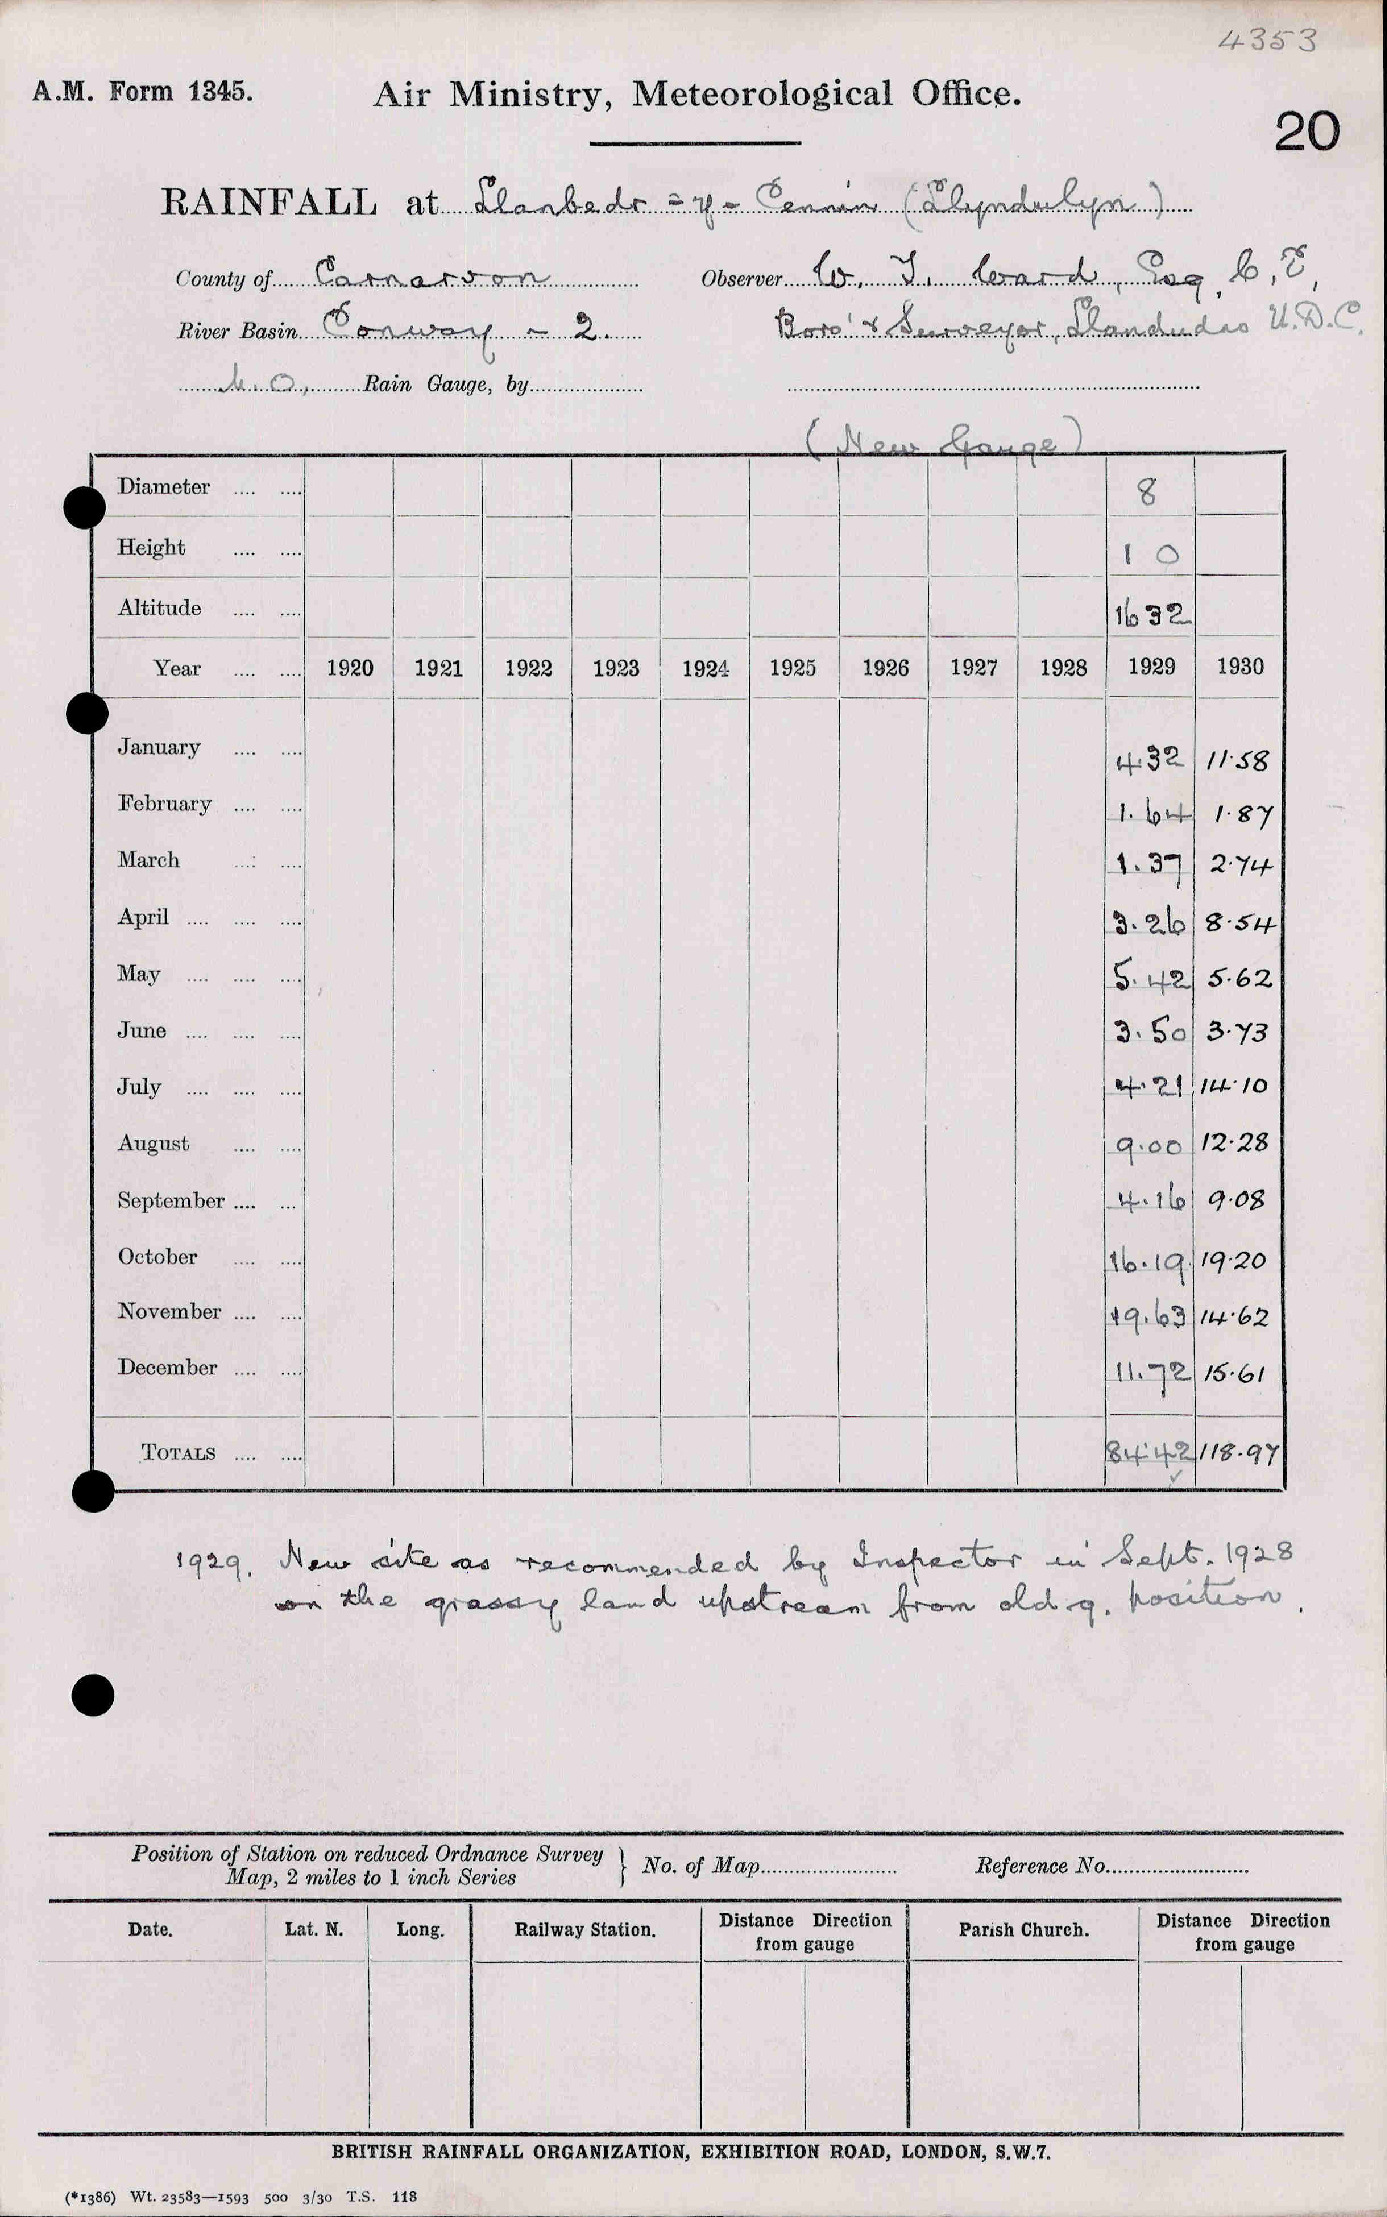 4353
A.M. Form 1345.
Air Ministry, Meteorological Office.
20
RAINFALL at Llanbedr = y = Cennin (Llyndulyn)
County of Carnarvon Observer W. T. Ward, Esq, C.E,
River Basin Conway - 2. Boro' & Surveyor, Llandudno U.D.C.
M.O. Rain Gauge, by
(New Gauge)
Diameter .... .... 8
Height .... .... 1 0
Altitude .... .... 1632
Year .... .... 1920 1921 1922 1923 1924 1925 1926 1927 1928 1929 1930
January .... .... 4.32 11.58
February .... .... 1.64 1.87
March .... .... 1.37 2.74
April .... .... .... 3.26 8.54
May .... .... .... 5.42 5.62
June .... .... .... 3.50 3.73
July .... .... .... 4.21 14.10
August .... .... 9.00 12.28
September .... ... 4.16 9.08
October .... .... 16.19 19.20
November .... .... 19.63 14.62
December .... .... 11.72 15.61
TOTALS .... .... 84.42 118.97
1929. New site as recommended by Inspector in Sept. 1928
on the grassy land upstream from old g. position.
Position of Station on reduced Ordnance Survey
Map, 2 miles to 1 inch Series } No. of Map Reference No.
Date. Lat. N. Long. Railway Station. Distance Direction from gauge Parish Church. Distance Direction from gauge
BRITISH RAINFALL ORGANIZATION, EXHIBITION ROAD, LONDON, S.W.7.
(*1386) Wt. 23583—1593 500 3/30 T.S. 118